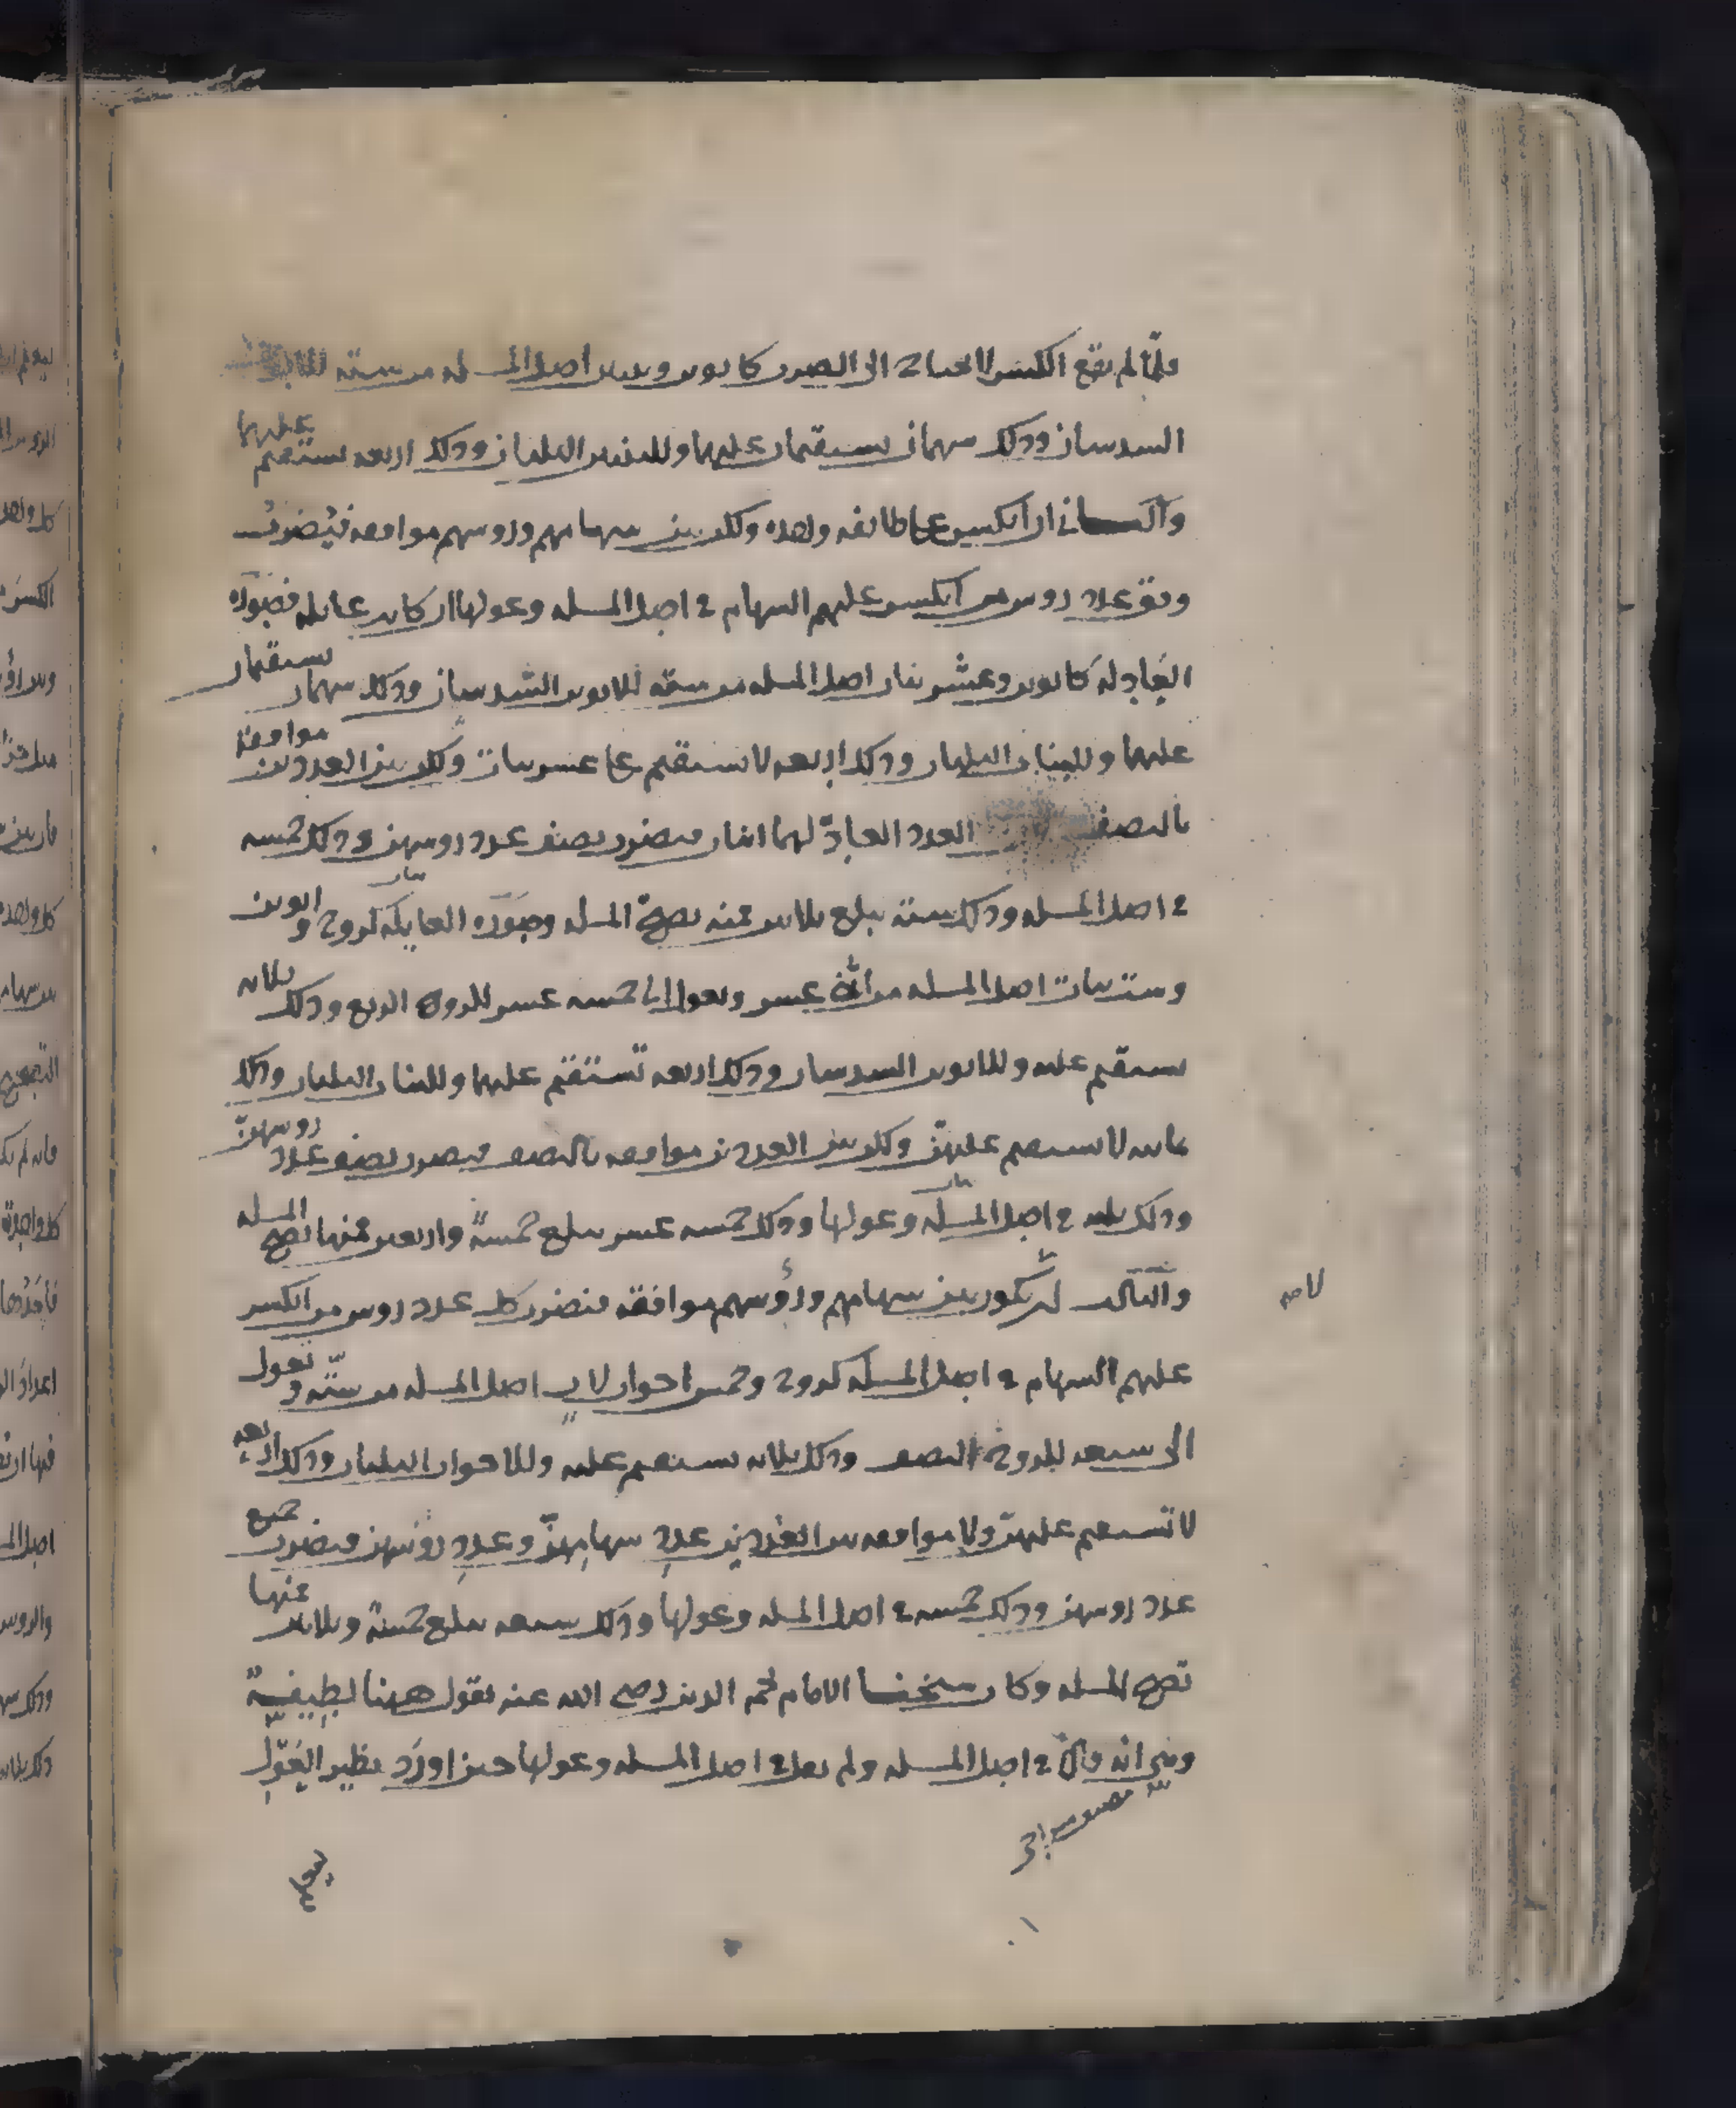 فلمّا لم يقع الكسر لا يحتاج الى الضرب كابوين وبنتين اصل المسله من سته للابوين
السدسان وذلك سهمان يستقيمان عليهما وللبنتين الثلثان وذلك اربعه يستقيم عليهما
والثاني ان انكسر على طائفه واحده ولكن بين سهامهم وروسهم موافقه فيُضرب
وفق عدد روس من انكسر عليهم السهام في اصل المسله وعولها ان كانت عائله فصورة
العادلة كابوين وعشر بنات اصل المسله من سته للابوين السدسان وذلك سهمان يستقيمان
عليهما وللبنات الثلثان وذلك اربعه لا يستقيم على عشر بنات ولكن بين العددين موافقة
بالنصف العدد العادّ لهما اثنان فيضرب نصف عدد روسهن وذلك خمسه
في اصل المسله وذلك سته يبلغ ثلاثين فمنه تصحّ المسله وصورة العايلة كزوج وابوين
وست بنات اصل المسله من اثنى عشر وتعول الى خمسه عشر للزوج الربع وذلك ثلاثه
يستقيم عليه وللابوين السدسان وذلك اربعه تستقيم عليهما وللبنات الثلثان وذلك
ثمانيه لا يستقيم عليهنّ ولكن بين العددين موافقه بالنصف فيضرب نصف عدد روسهنّ
وذلك ثلثه في اصل المسله وعولها وذلك خمسه عشر يبلغ خمسةً واربعين فمنها تصح المسله
والثالث ان لا يكون بين سهامهم ورؤسهم موافقة فيضرب كل عدد روس من انكسر
لا صه
عليهم السهام في اصل المسله كزوج وخمس اخوات لاب اصل المسله من ستّه وتعول
الى سبعه للزوج النصف وذلك ثلاثه يستقيم عليه وللاخوات الثلثان وذلك اربعه
لا تستقيم عليهنّ ولا موافقه بين العددين عددِ سهامِهنّ وعددِ رؤسهن فيضرب جميع
عدد روسهن وذلك خمسه في اصل المسله وعولها وذلك سبعه يبلغ خمسةً وثلاثين فمنها
تصح المسله وكان شيخنا الامام نجم الدين رضي الله عنه يقول ههنا لطيفة
وهي انه قال في اصل المسله ولم يقل في اصل المسله وعولها حين اورد نظير العَوْلِ